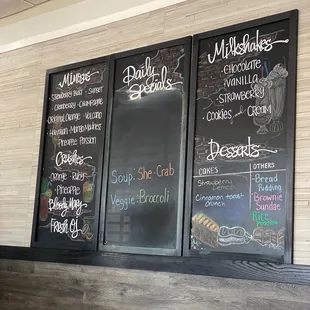 Mimosas
Strawberry Basil - Sunset
Cranberry - Champagne
Original Orange - Volcano
Hawaiian - Mango Madness
Pineapple - Passion
Crushes
Orange - Ruby
Pineapple
Bloody Mary
Fresh OJ
Daily
Specials
Soup: She-Crab
Veggie: Broccoli
Milkshakes
Chocolate
Vanilla
Strawberry
Cookies & Cream
Desserts
Cakes
Others
Strawberry
Lemon
Cinnamon toast
Crunch
Bread
Pudding
Brownie
Sundae
Rice
Pudding